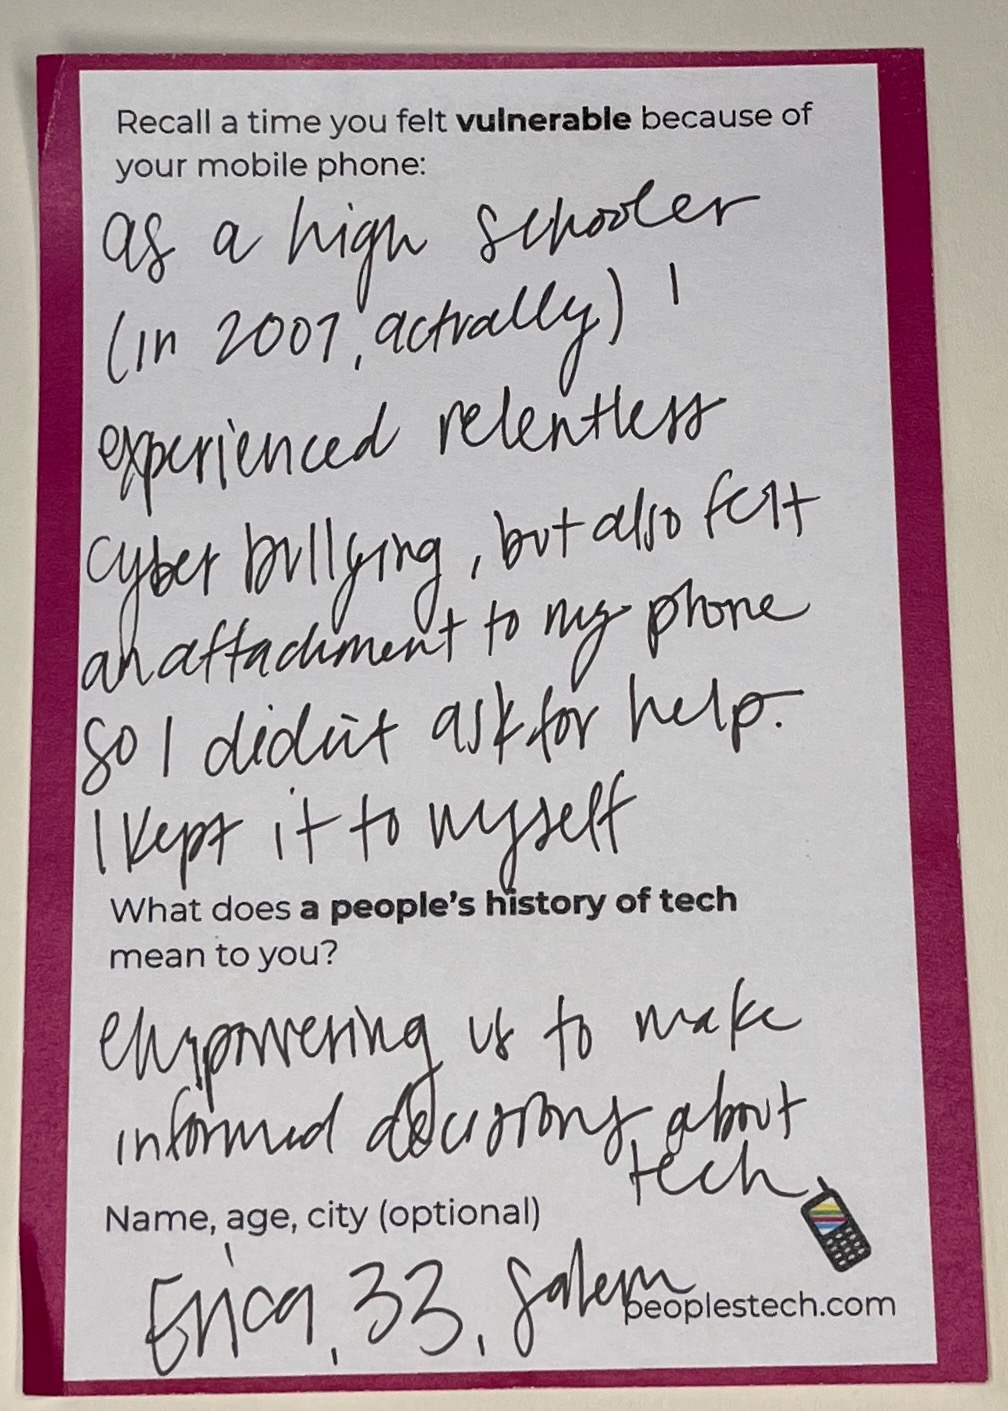 Recall a time you felt vulnerable because of
your mobile phone:
as a high schooler
(in 2007, actually) I
experienced relentless
cyber bullying, but also felt
an attachment to my phone
so I didn't ask for help.
I kept it to myself
What does a people's history of tech
mean to you?
empowering us to make
informed decisions about
tech
Name, age, city (optional)
Erica, 33, Salem
peoplestech.com